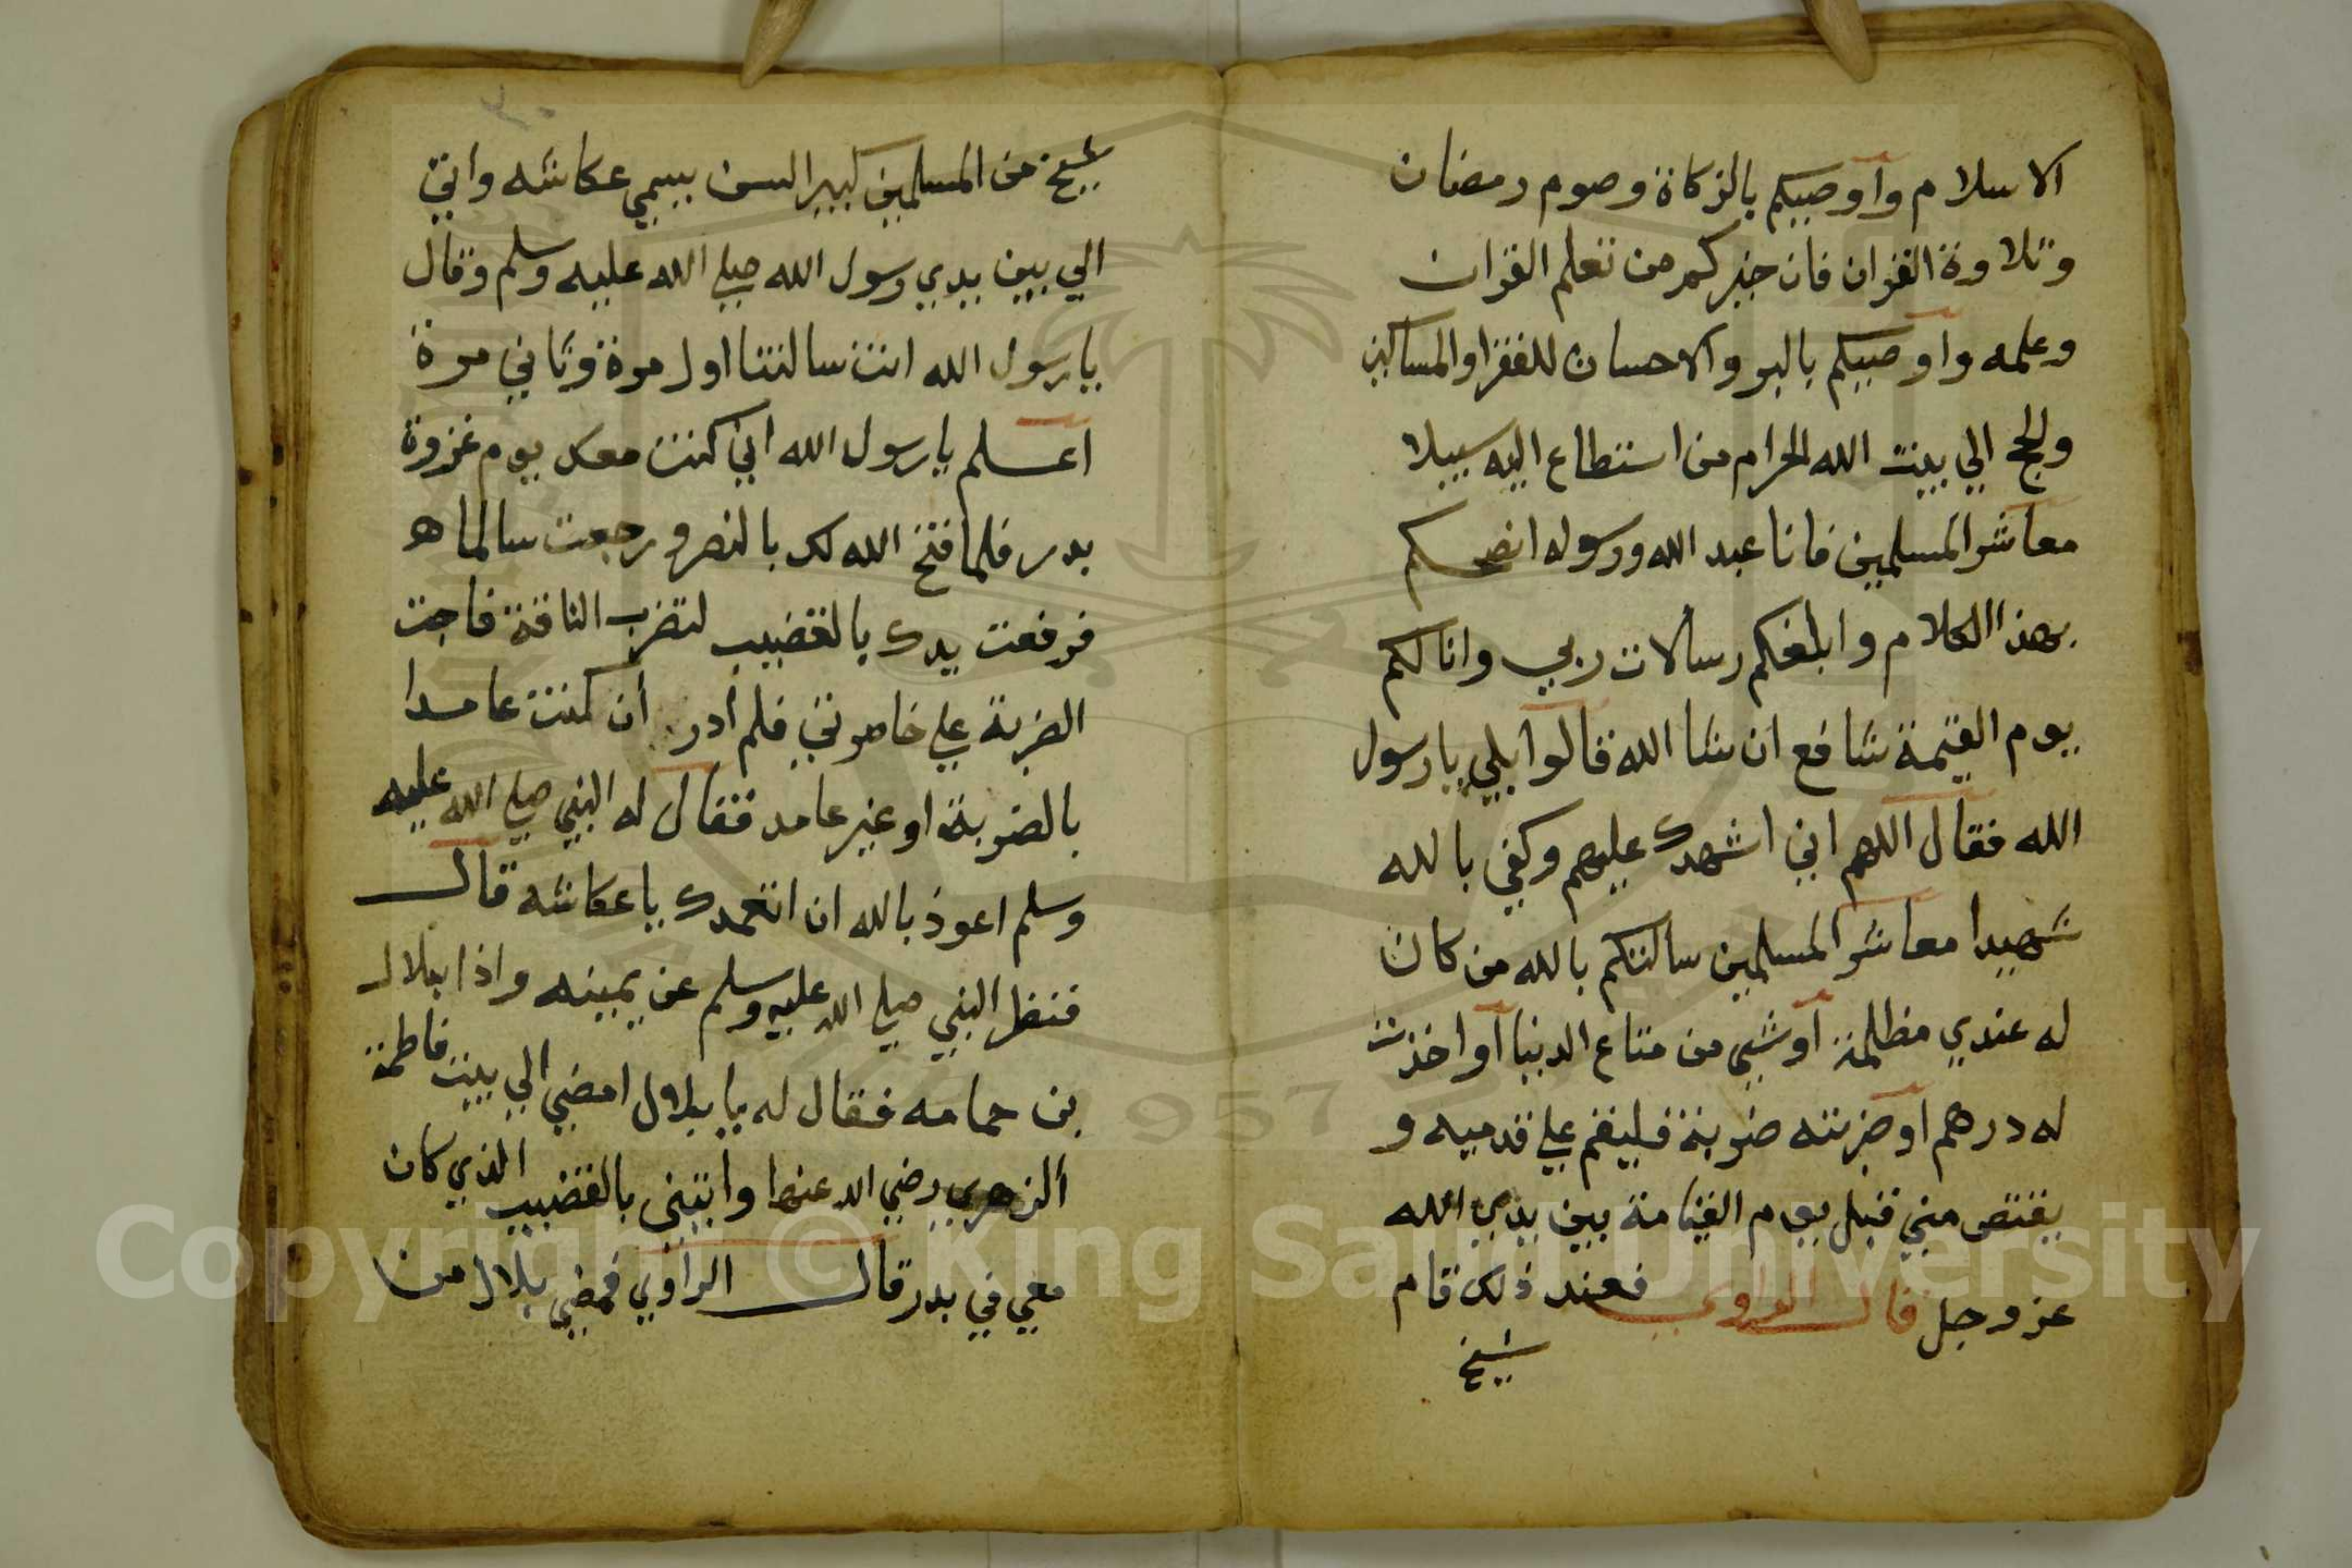 الاسلام وأوصيكم بالزكاة وصوم رمضان
وتلاوة القران فان خيركم من تعلم القران
وعلمه واوصيكم بالبر والاحسان للفقرا والمساكين
والحج الي بيت الله الحرام من استطاع اليه سبيلا
معاشر المسلمين فانا عبد الله ورسوله انصحكم
بهذا الكلام وابلغكم رسالات ربي وانا لكم
يوم القيمة شافع ان شا الله قالوا بلي يا رسول
الله فقال اللهم اني اشهدك عليهم وكفي بالله
شهيدا معاشر المسلمين سالتكم بالله من كان
له عندي مظلمة أو شي من متاع الدنيا أو اخذت
له درهم أو ضربته ضربة فليقم علي قدميه و
يقتص مني قبل يوم القيامة بين يدي الله
عز وجل قال الراوي فعند ذلك قام
شيخ
شيخ من المسلمين كبير السن يسمي عكاشه واتي
الي بين يدي رسول الله صلي الله عليه وسلم وقال
يا رسول الله انت سالتنا اول مرة وثاني مرة
اعلم يا رسول الله اني كنت معك يوم غزوة
بدر فلما فتح الله لك بالنصر ورجعت سالما
فرفعت يدك بالقضيب لتضرب الناقة فاجت
الضربة علي خاصرتي فلم أدر أن كنت عامدا
بالضربة او غير عامد فقال له النبي صلي الله عليه
وسلم اعوذ بالله ان اتعمدك يا عكاشه قال
فنظر النبي صلي الله عليه وسلم عن يمينه واذا ببلال
بن حمامه فقال له يا بلال امضي الي بيت فاطمة
ألزهري رضي الله عنها وأتيني بالقضيب الذي كان
معي في بدر قال الراوي فمضي بلال من
Copyright © King Saud University
957